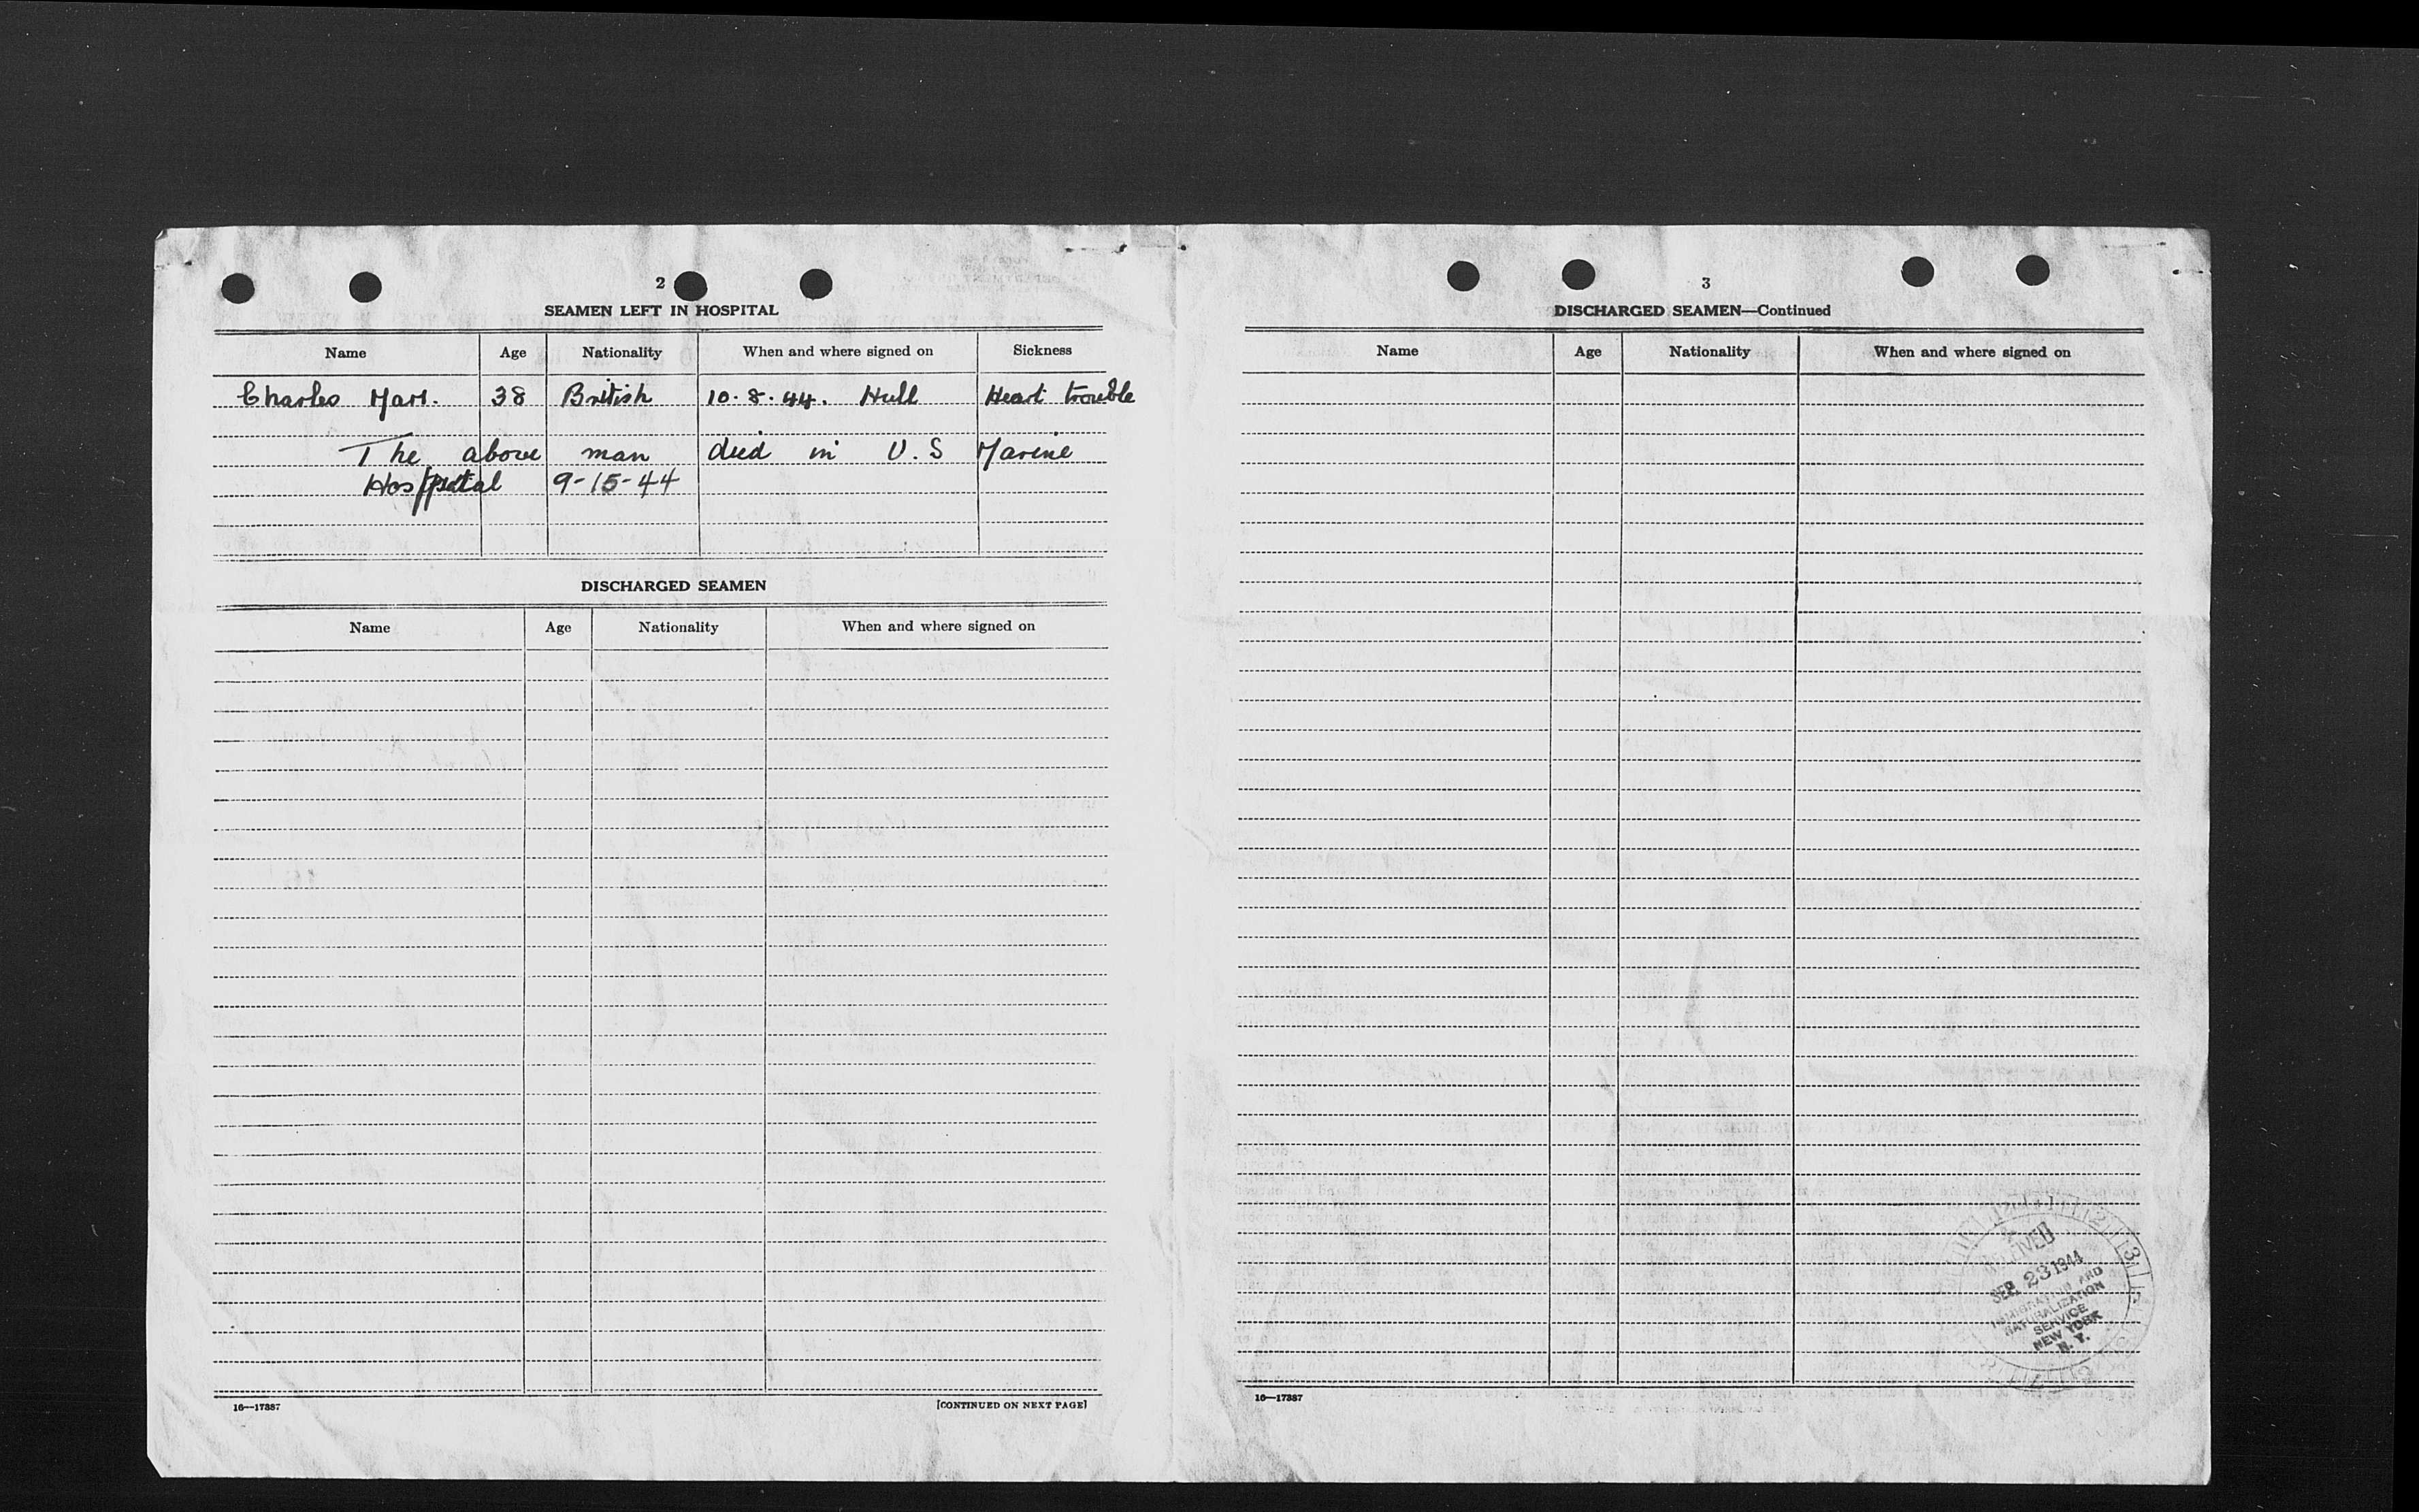 2
SEAMEN LEFT IN HOSPITAL
Name Age Nationality When and where signed on Sickness
Charles 38 British 10.8.44. Hull Heart trouble
The above man died in U.S Marine
Hospital 9-15-44
DISCHARGED SEAMEN
Name Age Nationality When and where signed on
16—17387 [CONTINUED ON NEXT PAGE]
3
DISCHARGED SEAMEN—Continued
Name Age Nationality When and where signed on
RECEIVED
SEP 23 1944
IMMIGRATION AND
NATURALIZATION
SERVICE
NEW YORK
N. Y.
16—17387